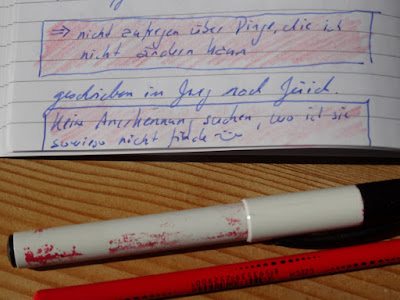 ⇒ nicht aufregen über Dinge, die ich
nicht ändern kann
geschrieben im Zug nach Zürich.
Keine Anerkennung suchen, wo ich sie
sowieso nicht finde